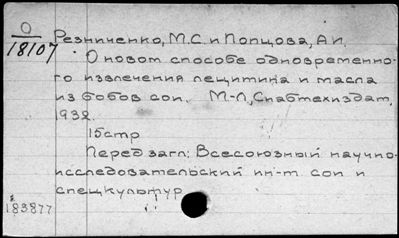 O
18107
Резниченко, М.С. и Попцова, А.И.
О новом способе одновременно-
го извлечения лецитина и масла
из бобов сои. М-Л, Снабтехиздат,
1932.
15 стр
Перед загл: Всесоюзный научно-
исследовательский ин-т сои и
спецкультур
183877